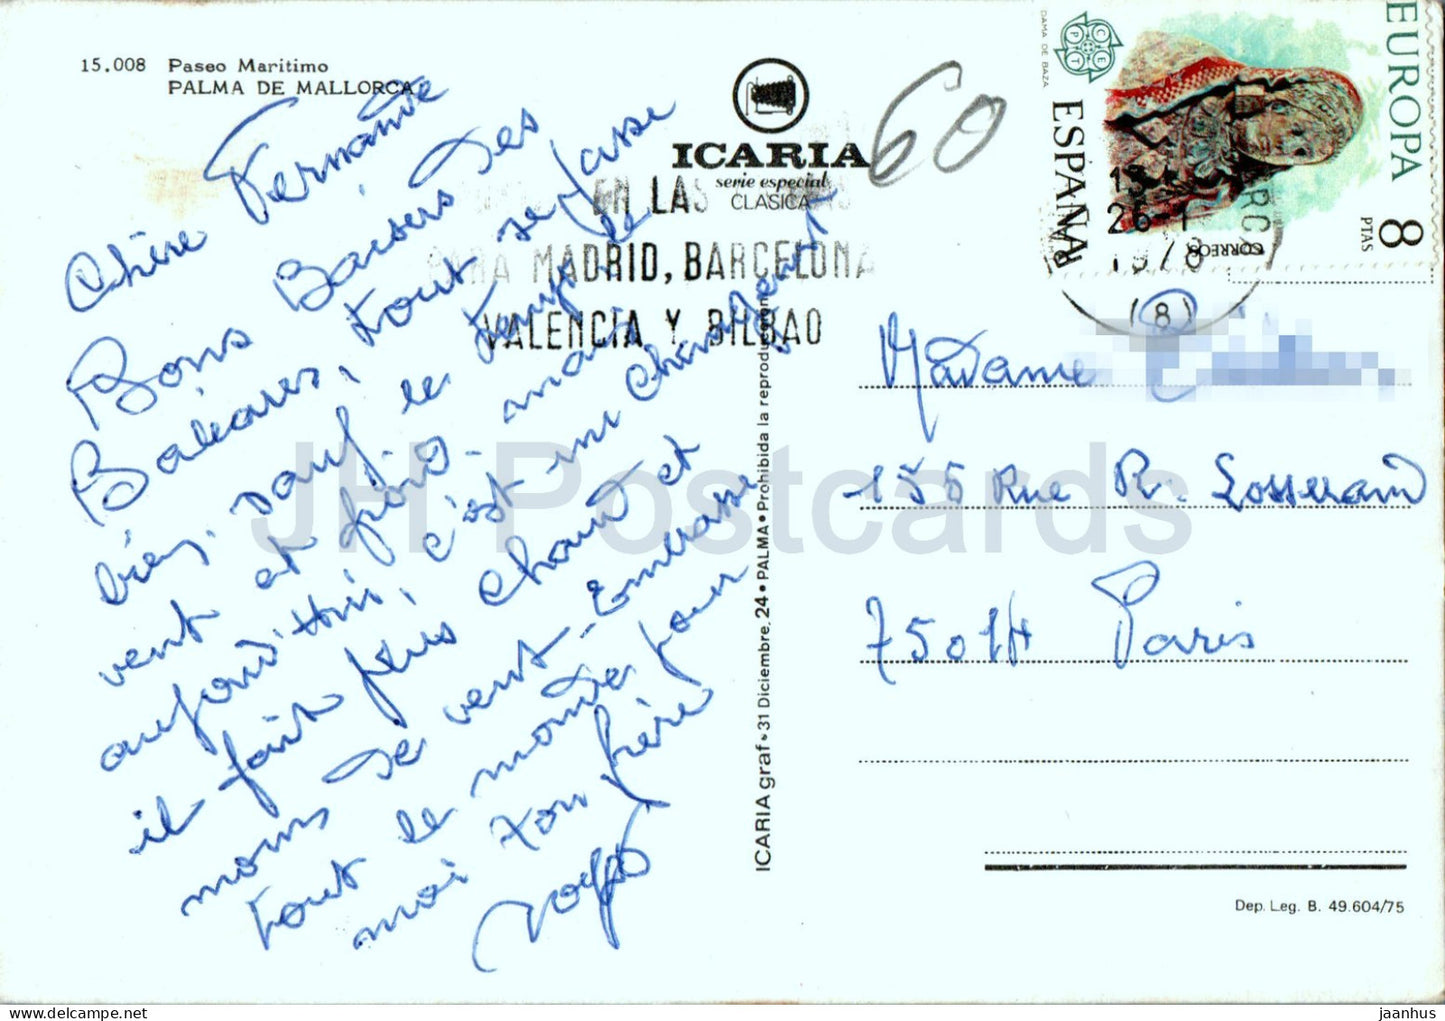 15.008 Paseo Maritimo
PALMA DE MALLORCA
ICARIA
serie especial
CLASICA
60
EN LAS
PARA MADRID, BARCELONA
VALENCIA Y BILBAO
DAMA DE BAZA
CEPT
ESPAÑA
EUROPA
8
PTAS
CORREOS
26-1
1978
(8)
Chère Fernande
Bons Baisers des
Baléares, tout se passe
bien, sauf le temps le
vent et froid. mais
aujourd'hui, c'est un changement
il fait plus chaud et
moins de vent. Embrasse
tout le monde pour
moi ton frère
Madame
155 Rue R. Losserand
75014 Paris
ICARIA graf • 31 Diciembre, 24 • PALMA • Prohibida la reproducción
Dep. Leg. B. 49.604/75
JH Postcards
jaanhus